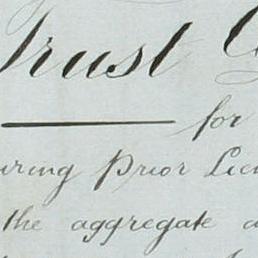 Trust
for
uring Prior Lien
the aggregate a